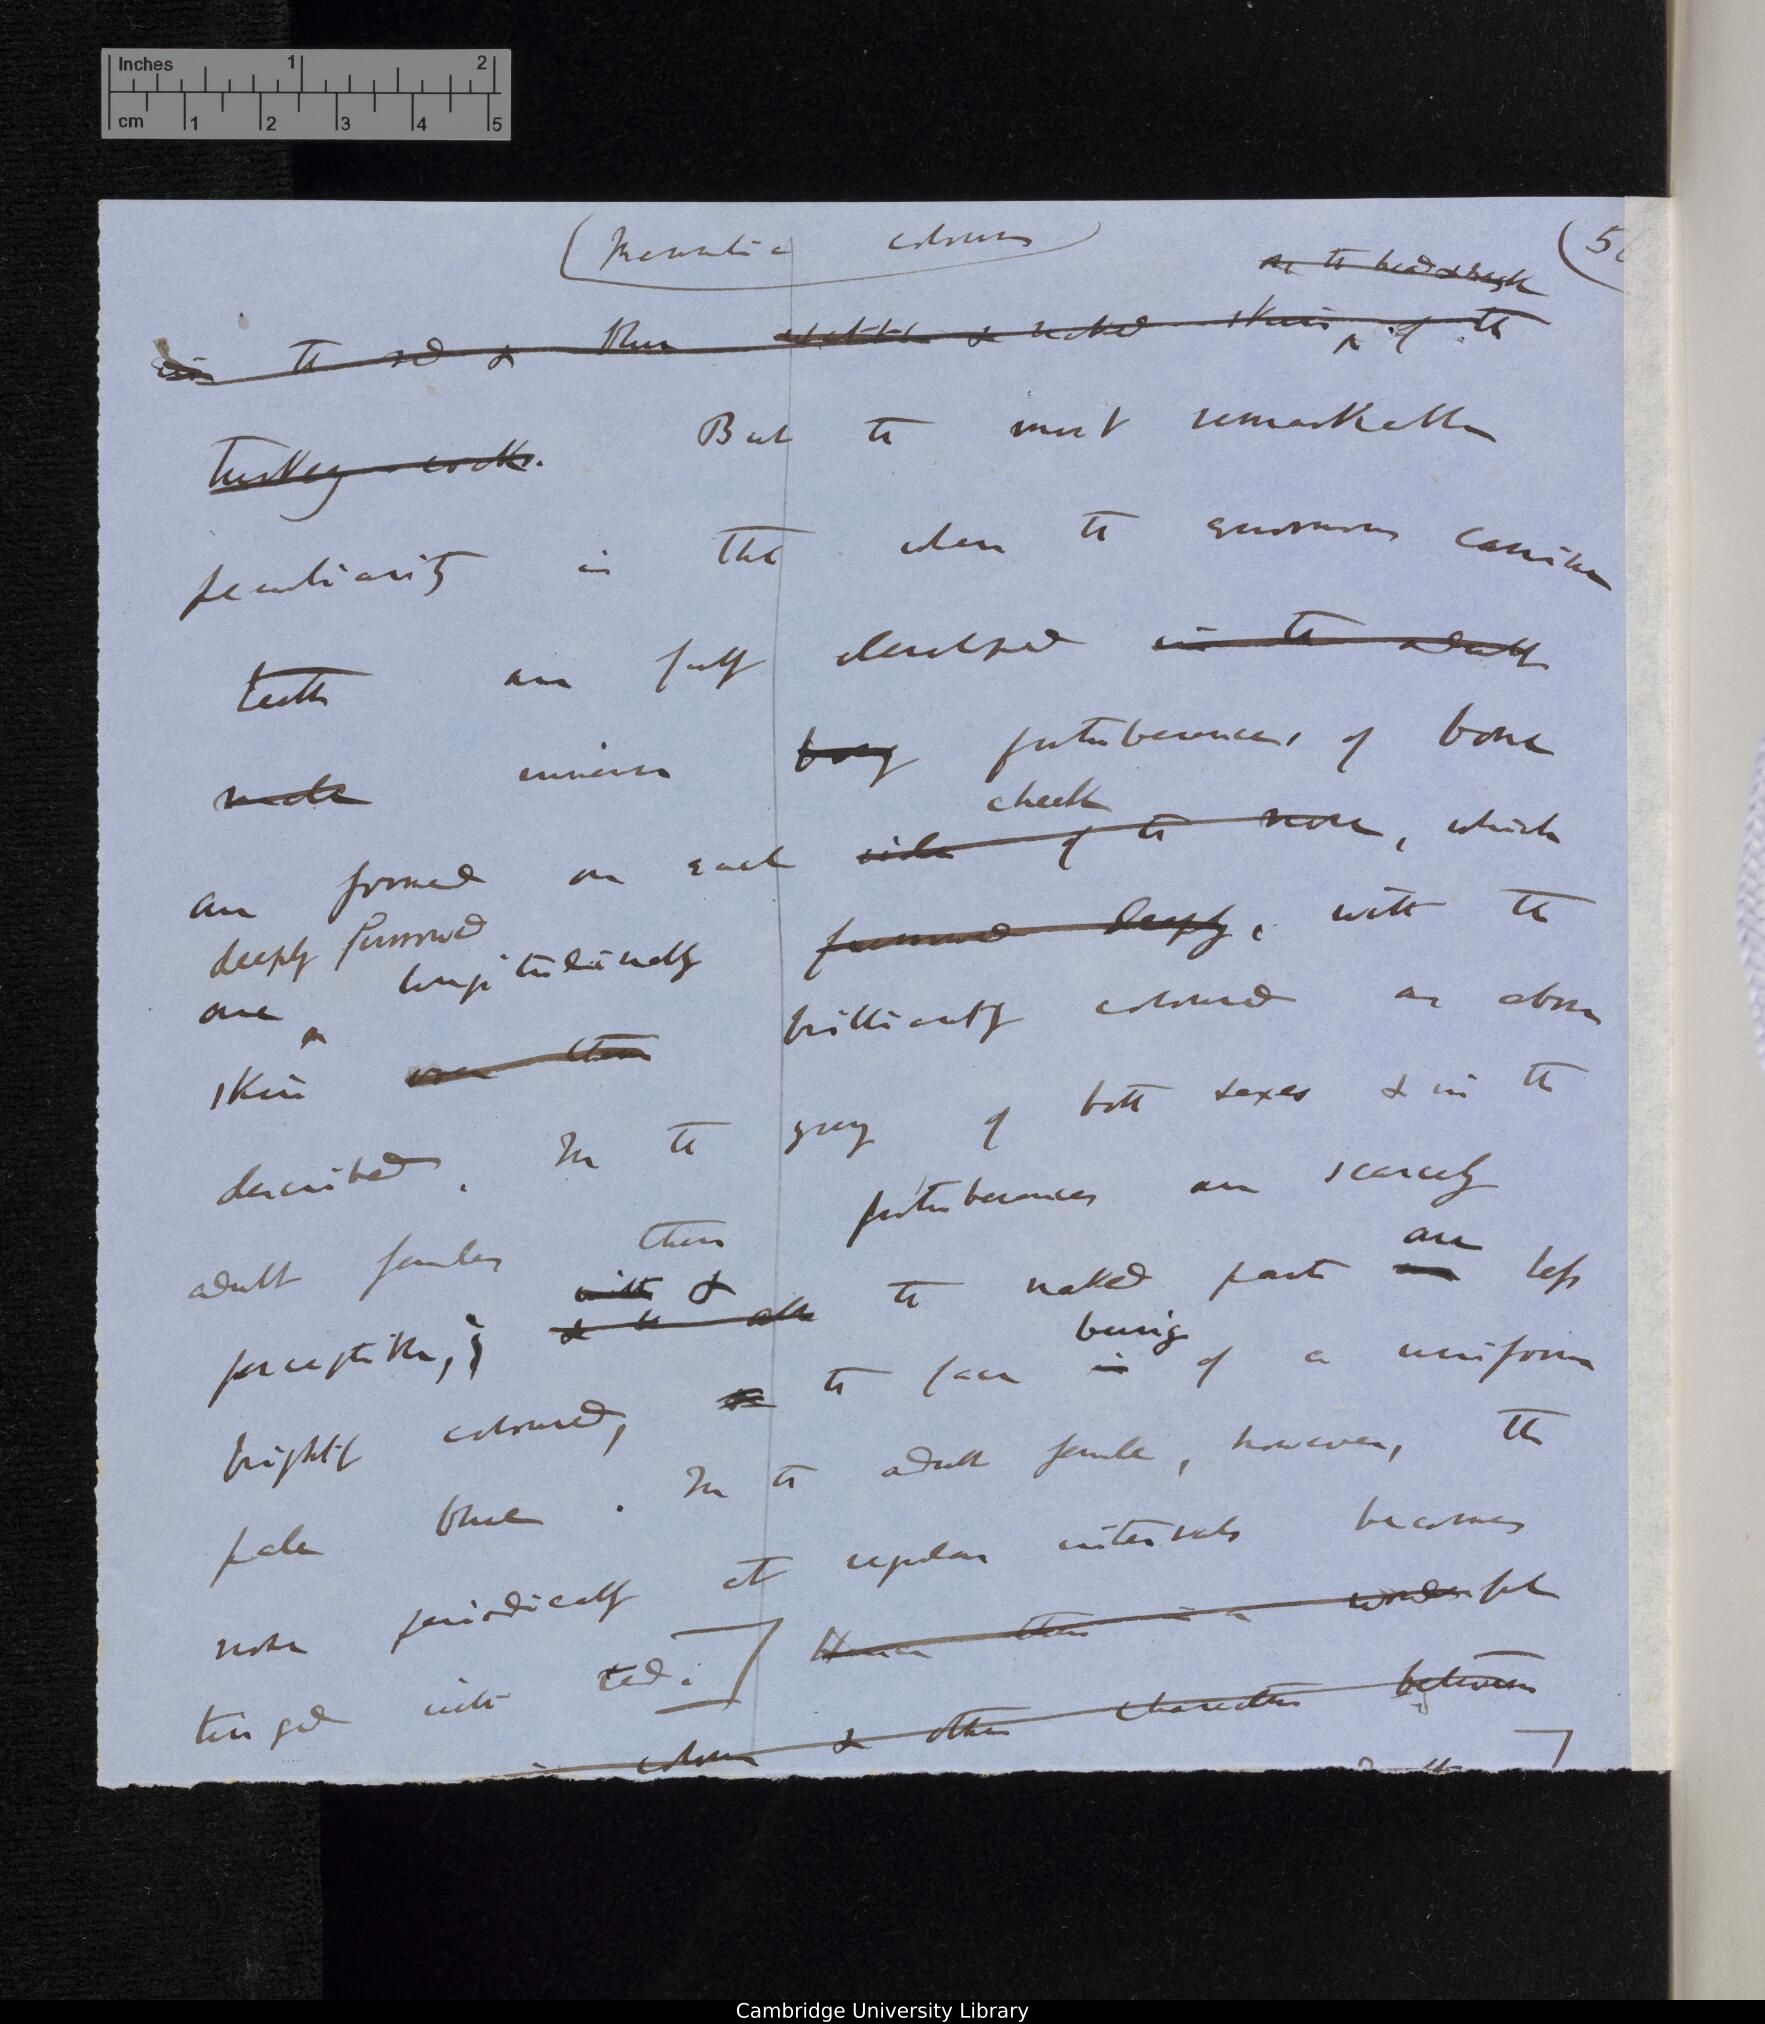 Inches 1 2
cm 1 2 3 4 5
(Mammalia colours)
(5
on the head & neck
in the red & blue wattle & naked skin ^ of the
Turkey-cock. But the most remarkable
peculiarity is that when the enormous canine
teeth are fully developed in the adult
male immense bony protuberances, of bone
cheek
are formed on each side of the nose, which
deeply furrowed
are ^ longitudinally furrowed deeply, with the
skin over them brilliantly coloured as above
described. In the young of both sexes & in the
adult females these protuberances are scarcely
with & are
perceptible, ; & the naked parts less
being
brightly coloured, the face is of a uniform
pale blue. In the adult female, however, the
nose periodically at regular intervals becomes
tinged with red.] Hence there is a wonderful
in colour & other characters between